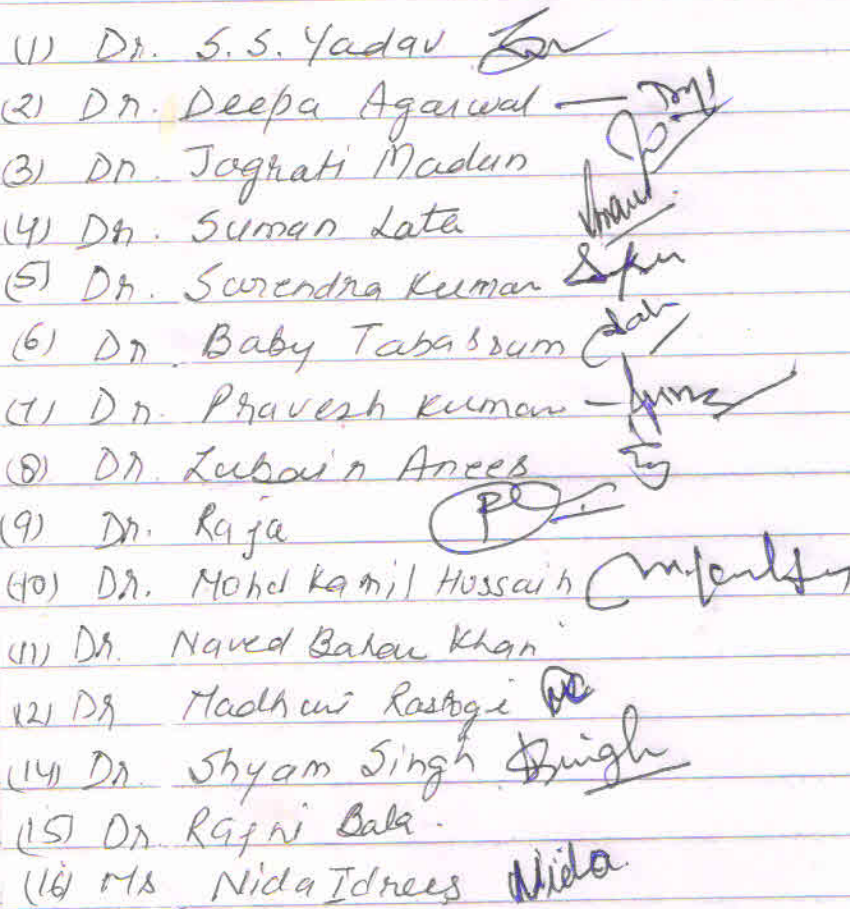 (1) Dr. S.S. Yadav
(2) Dr. Deepa Agarwal —
(3) Dr. Jagrati Madan
(4) Dr. Suman Lata
(5) Dr. Surendra Kumar
(6) Dr. Baby Tabassum
(7) Dr. Pravesh Kumar -
(8) Dr. Zubair Anees
(9) Dr. Raja
(10) Dr. Mohd Kamil Hussain
(11) Dr. Naved Khan
(12) Dr Madhuri Rastogi
(14) Dr. Shyam Singh Singh
(15) Dr. Rajni Bala.
(16) Ms Nida Idrees Nida